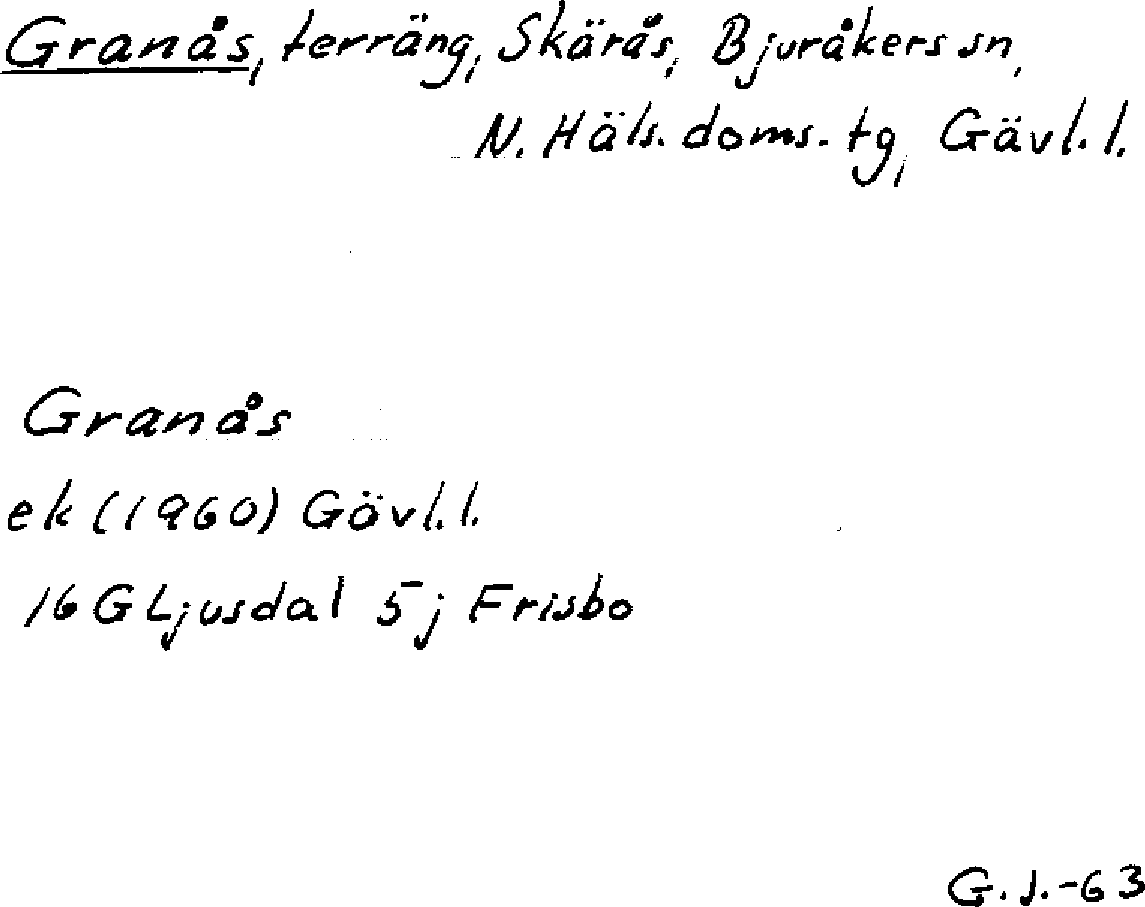 Granås, terräng, Skärås, Bjuråkers sn,
N. Häls. doms. tg, Gävl. l.
Granås
ek (1960) Gävl. l.
16 G Ljusdal 5j Frisbo
G. J. -63